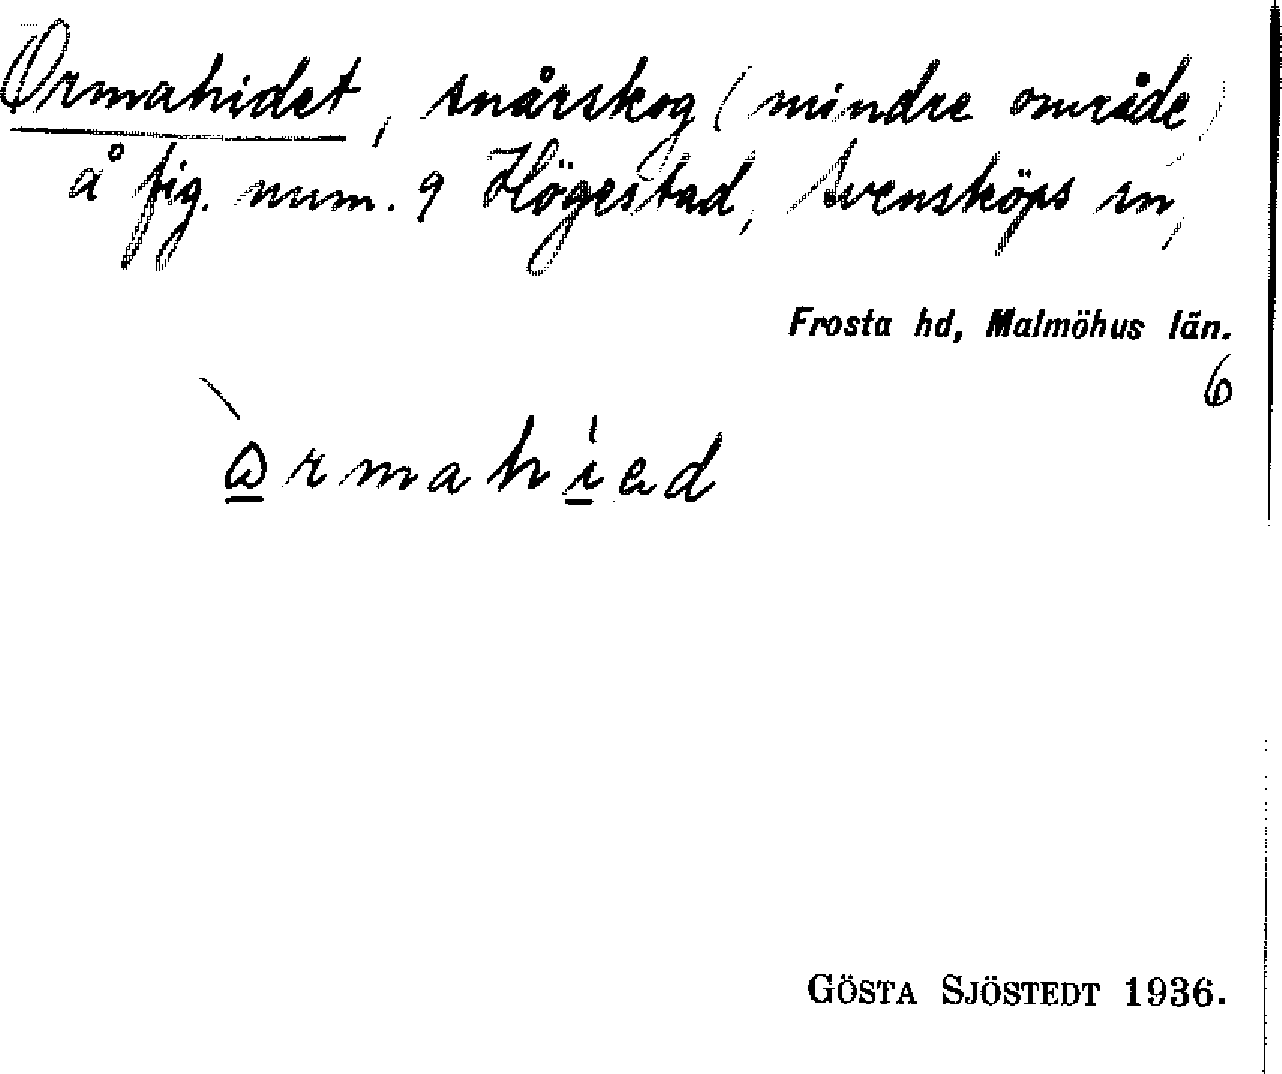 Ormahidet, snårskog (mindre område)
å fig. num. 9 Högestad, Svensköps sn,
Frosta hd, Malmöhus län.
6
ormahied
GÖSTA SJÖSTEDT 1936.